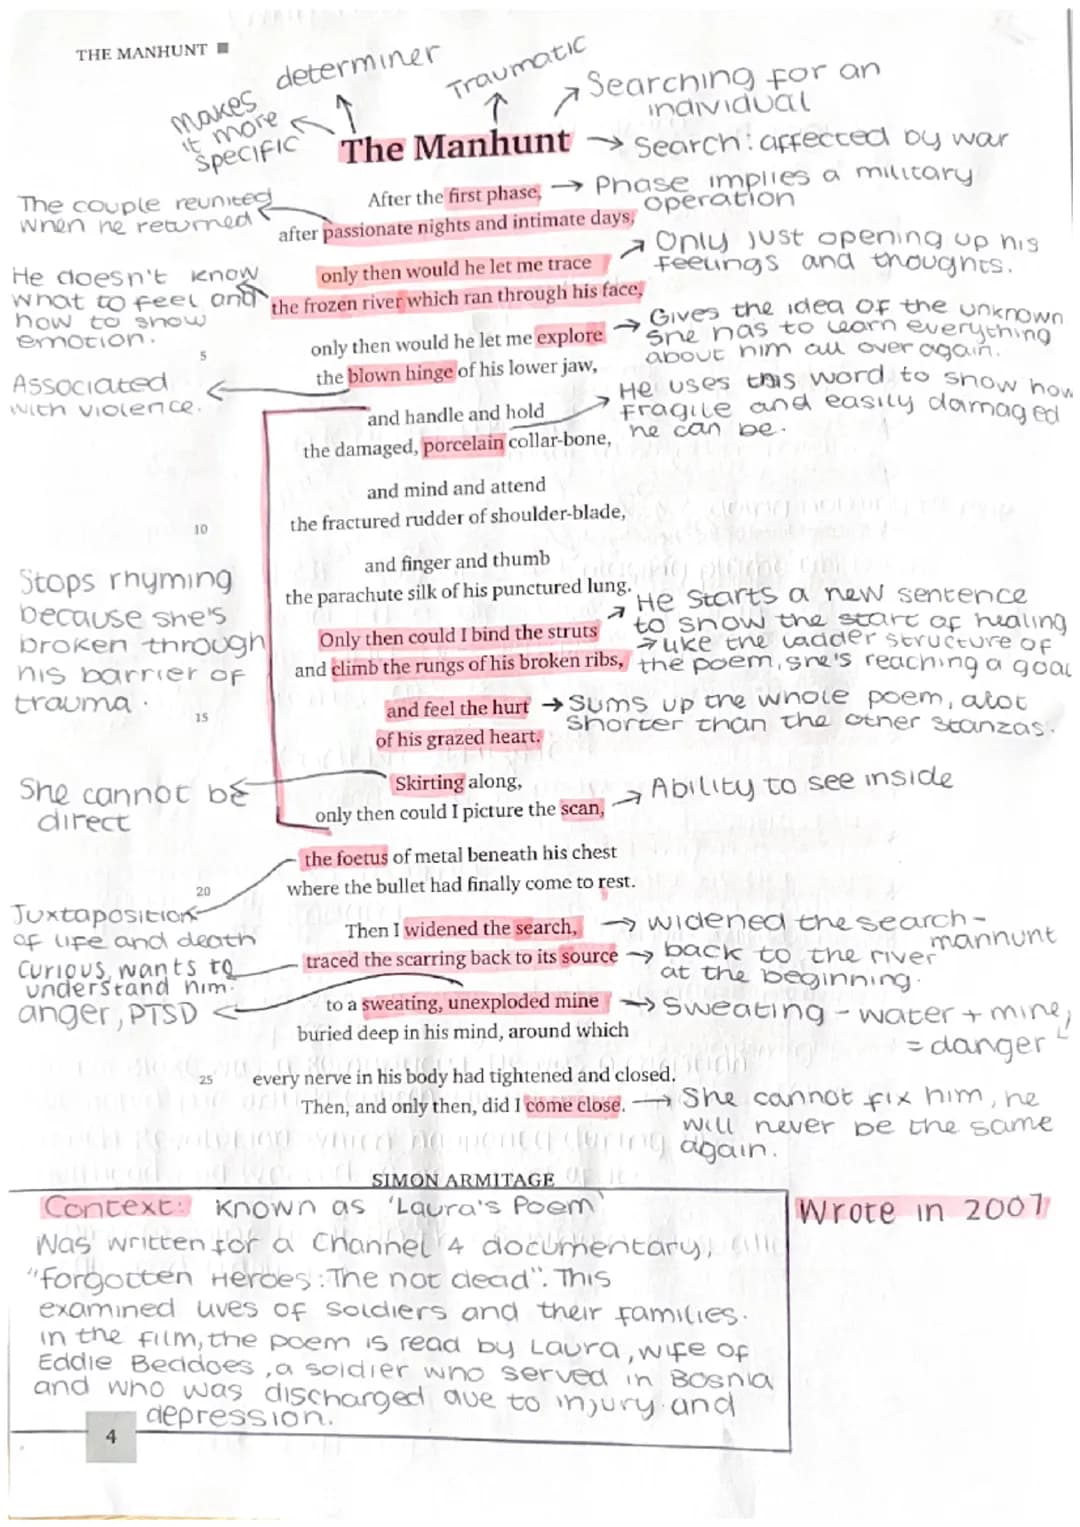 THE MANHUNT
determiner
Traumatic
Searching for an
individual
Makes
it more
specific
The Manhunt
Search: affected by war
The couple reunited
when he returned
After the first phase,
after passionate nights and intimate days,
Phase implies a military
operation
only then would he let me trace
the frozen river which ran through his face,
Only just opening up his
feelings and thoughts.
He doesn't know
what to feel and
how to show
emotion.
5
only then would he let me explore
the blown hinge of his lower jaw,
Gives the idea of the unknown
she has to learn everything
about him all over again.
Associated
with violence.
and handle and hold
the damaged, porcelain collar-bone,
He uses this word to show how
fragile and easily damaged
he can be.
and mind and attend
10
the fractured rudder of shoulder-blade,
and finger and thumb
the parachute silk of his punctured lung.
Stops rhyming
because she's
broken through
his barrier of
trauma.
Only then could I bind the struts
and climb the rungs of his broken ribs,
He starts a new sentence
to show the start of healing
like the ladder structure of
the poem, she's reaching a goal
15
and feel the hurt
of his grazed heart.
Sums up the whole poem, alot
shorter than the other stanzas.
She cannot be
direct
Skirting along,
only then could I picture the scan,
Ability to see inside
the foetus of metal beneath his chest
20
where the bullet had finally come to rest.
Juxtaposition
of life and death
Then I widened the search,
traced the scarring back to its source
widened the search-
manhunt
back to the river
at the beginning.
Curious, wants to
understand him.
anger, PTSD
to a sweating, unexploded mine
buried deep in his mind, around which
Sweating - water + mine,
= danger
25
every nerve in his body had tightened and closed.
Then, and only then, did I come close.
She cannot fix him, he
will never be the same
again.
SIMON ARMITAGE
Context: Known as 'Laura's Poem'
Was written for a Channel 4 documentary,
"forgotten Heroes: The not dead". This
examined lives of soldiers and their families.
in the film, the poem is read by Laura, wife of
Eddie Beddoes, a soldier who served in Bosnia
and who was discharged due to injury and
depression.
Wrote in 2007
4